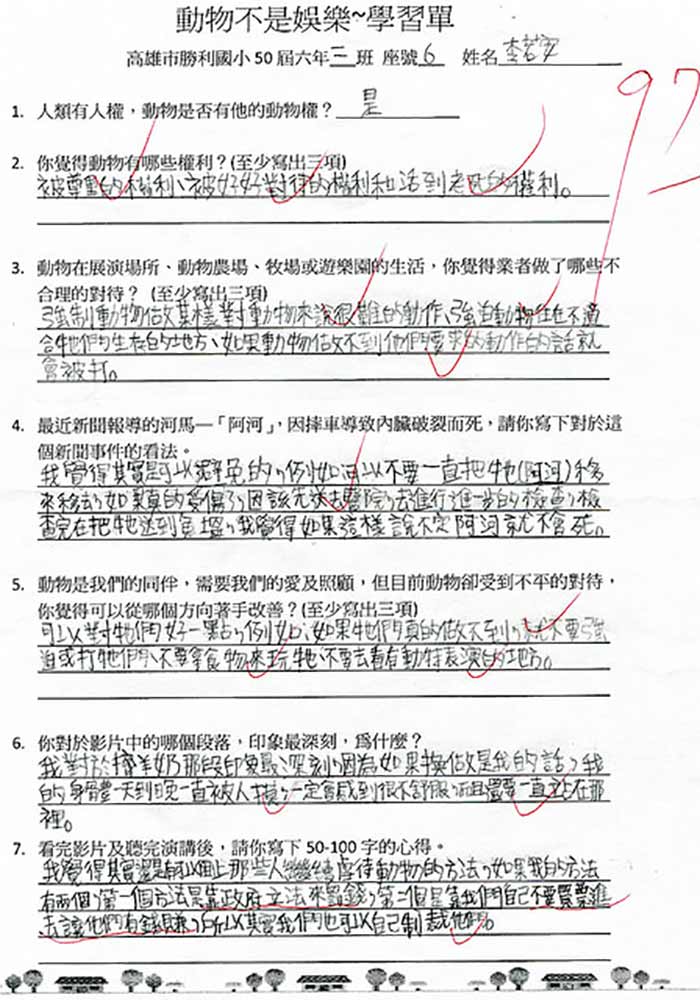 動物不是娛樂~學習單
高雄市勝利國小50屆六年三班 座號6 姓名李若安
97
1. 人類有人權,動物是否有他的動物權? 是
2. 你覺得動物有哪些權利?(至少寫出三項)
被尊重的權利、被好好對待的權利和活到老死的權利。
3. 動物在展演場所、動物農場、牧場或遊樂園的生活,你覺得業者做了哪些不
合理的對待? (至少寫出三項)
強制動物做某樣對動物來說很難的動作、強迫動物住在不適
合牠們生存的地方、如果動物做不到他們要求的動作的話就
會被打。
4. 最近新聞報導的河馬—「阿河」,因摔車導致內臟破裂而死,請你寫下對於這
個新聞事件的看法。
我覺得其實是可以避免的,例如可以不要一直把牠(阿河)移
來移去,如果真的受傷了,因該先送去醫院,去進行進一步的檢查,檢
查完在把牠送到,我覺得如果這樣說不定阿河就不會死。
5. 動物是我們的同伴,需要我們的愛及照顧,但目前動物卻受到不平的對待,
你覺得可以從哪個方向著手改善?(至少寫出三項)
可以對牠們好一點,例如:如果牠們真的做不到,就不要強
迫或打牠們、不要拿食物來玩牠、不要去看有動物表演的地方。
6. 你對於影片中的哪個段落,印象最深刻,為什麼?
我對於擠羊奶那段印象最深刻,因為如果換做是我的話,我
的身體一天到晚一直被人摸,一定會感到很不舒服,而且還要一直站在那
裡。
7. 看完影片及聽完演講後,請你寫下 50-100 字的心得。
我覺得其實還是有阻止那些人繼續虐待動物的方法,如果我的方法
有兩個,第一個方法是靠政府立法來罰錢,第二個是靠我們自己不要買票進
去讓他們有錢賺,所以其實我們也可以自己制裁他們。